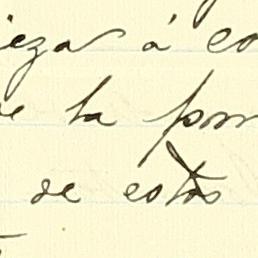 ieza á co
e la por
de estos